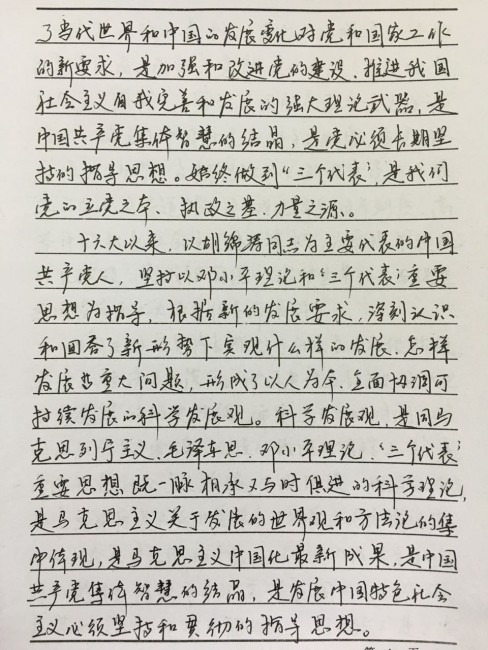 了当代世界和中国的发展变化对党和国家工作
的新要求，是加强和改进党的建设、推进我国
社会主义自我完善和发展的强大理论武器，是
中国共产党集体智慧的结晶，是党必须长期坚
持的指导思想。始终做到“三个代表”，是我们
党的立党之本、执政之基、力量之源。
十六大以来，以胡锦涛同志为主要代表的中国
共产党人，坚持以邓小平理论和“三个代表”重要
思想为指导，根据新的发展要求，深刻认识
和回答了新形势下实现什么样的发展、怎样
发展等重大问题，形成了以人为本、全面协调可
持续发展的科学发展观。科学发展观，是同马
克思列宁主义、毛泽东思、邓小平理论、“三个代表”
重要思想既一脉相承又与时俱进的科学理论，
是马克思主义关于发展的世界观和方法论的集
中体现，是马克思主义中国化最新成果，是中国
共产党集体智慧的结晶，是发展中国特色社会
主义必须坚持和贯彻的指导思想。